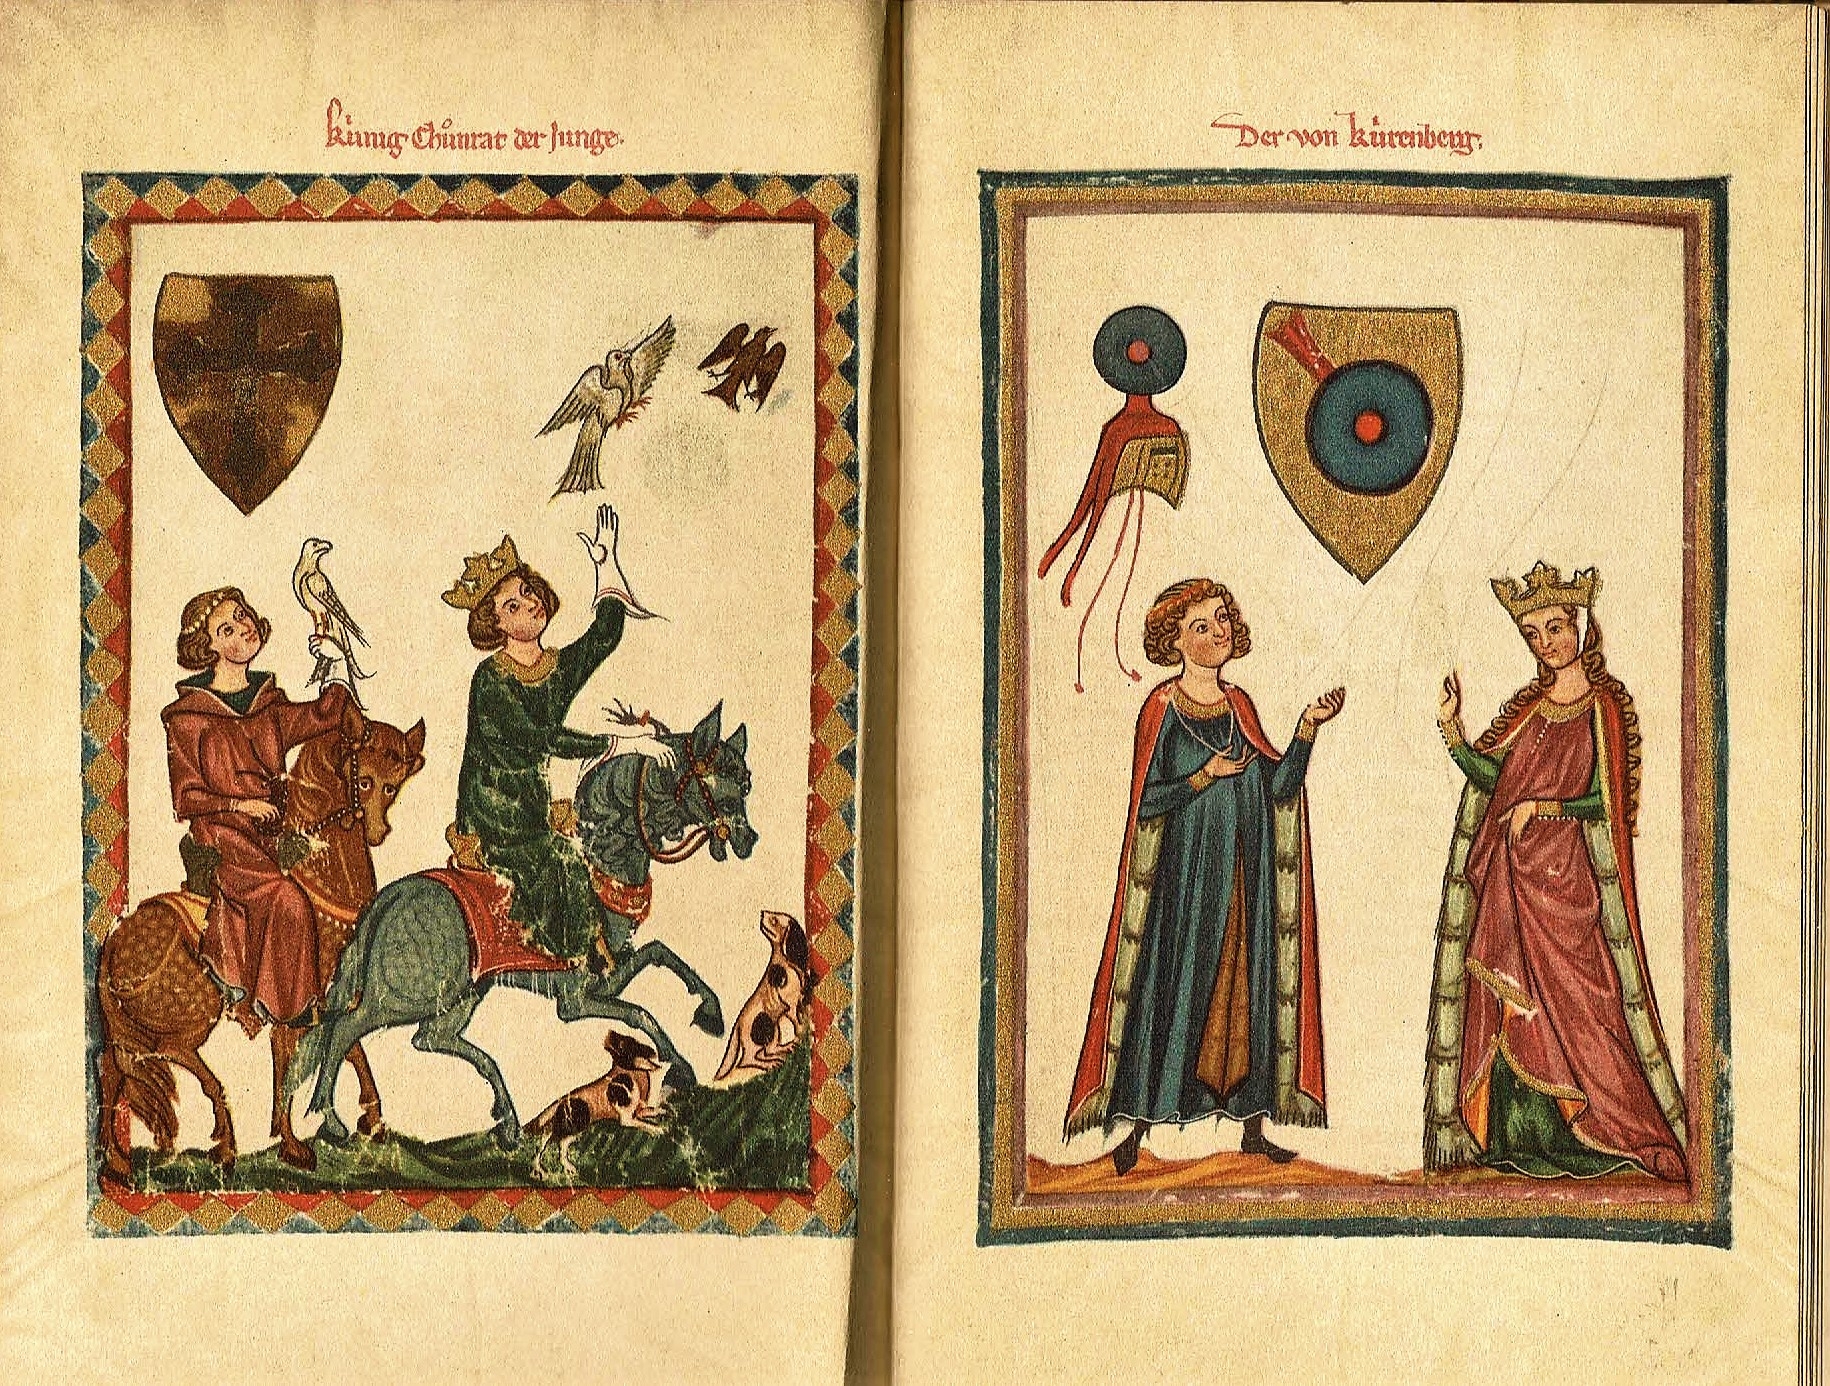 Künig Chůnrat der Junge.
Der von Kürenberg: